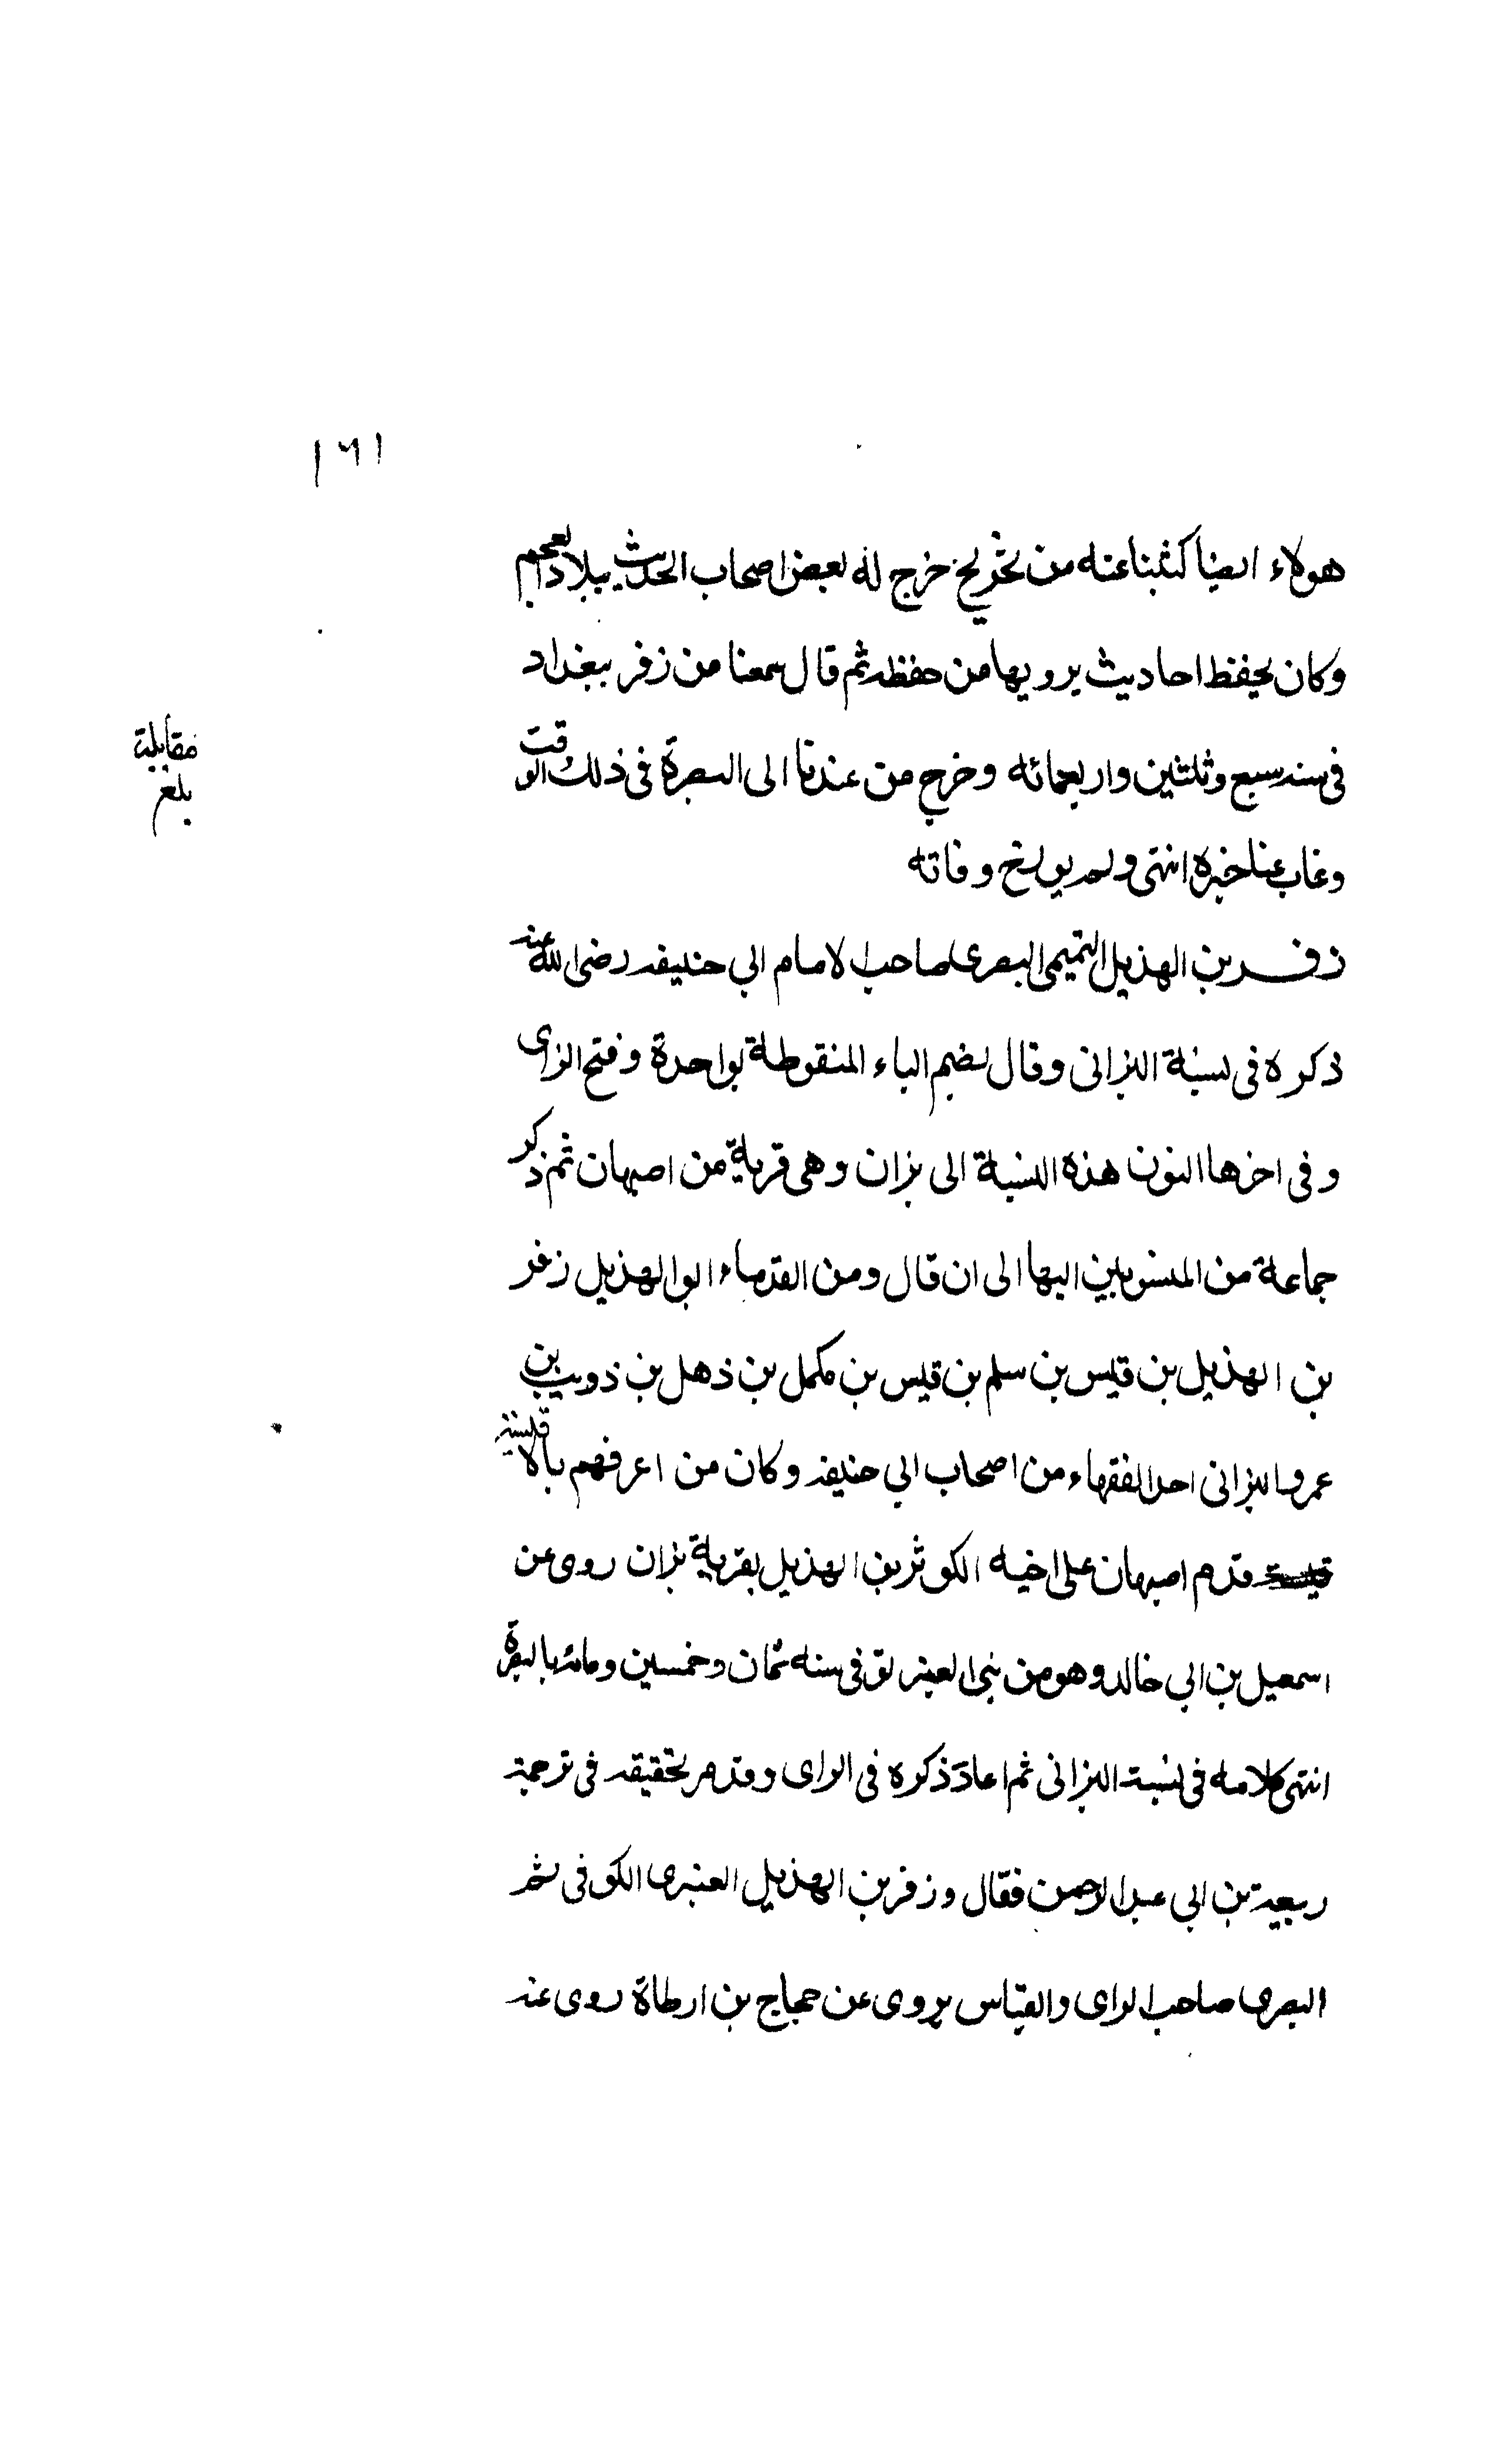 ١٦١
هولاء ايضا كتبنا عنه من تخريج خرج له بعض اصحاب الحديث ببلاد العجم
وكان يحفظ احاديث يرويها من حفظه ثم قال سمعنا من زفر ببغداد
فى سنه سبع وثلثين واربعمائه وخرج من عندنا الى البصرة فى ذلك الوقت
وغاب عنا خبره انتهى ولم يورخ وفاته
زفر بن الهذيل التميمى البصرى صاحب الامام ابي حنيفه رضى الله عنه
ذكره فى نسبة البزانى وقال بضم الباء المنقوطة بواحدة وفتح الزاى
وفى اخرها النون هذه النسبة الى بزان وهى قرية من اصبهان ثم ذكر
جماعة من المنسوبين اليها الى ان قال ومن القدماء ابو الهذيل زفر
بن الهذيل بن قيس بن سلم بن قيس بن مكمل بن ذهل بن ذويب بن
عمرو البزانى احد الفقهاء من اصحاب ابي حنيفه وكان من اعرفهم بالاقيسة
قدم اصبهان على اخيه الكوثر بن الهذيل بقرية بزان روى عن
اسمعيل بن ابي خالد وهو من بنى العنبر توفى سنه ثمان وخمسين ومائه بالبصرة
انتهى كلامه فى نسبة البزانى ثم اعاد ذكره فى الراى وقدمر تحقيقه فى ترجمة
ربيعة بن ابي عبد الرحمن فقال وزفر بن الهذيل العنبرى الكوفى ثم
البصرى صاحب الراى والقياس يروى عن حجاج بن ارطاة روى عنه
مقابلة
بلغ